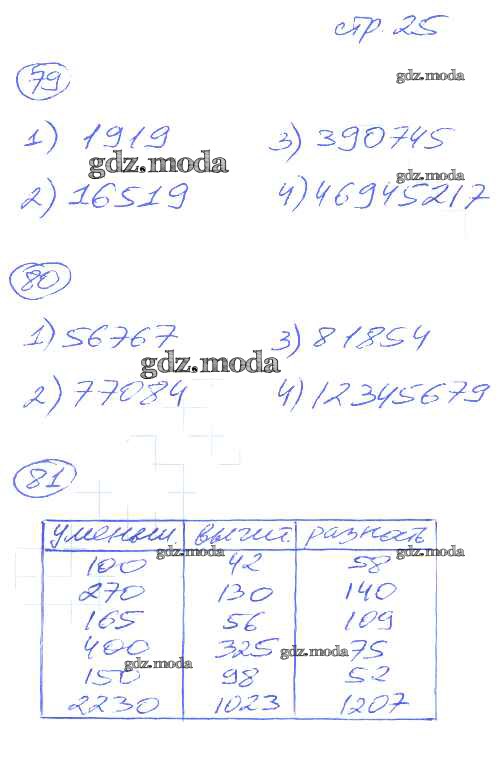 стр. 25
gdz.moda
79
1) 1919 3) 390745
gdz.moda
gdz.moda
2) 16519 4) 46945217
80
1) 56767 3) 81854
gdz.moda
2) 77084 4) 12345679
81
уменьш. вычит. разность
gdz.moda gdz.moda
100 42 58
270 130 140
165 56 109
400 325 75
gdz.moda
gdz.moda
150 98 52
2230 1023 1207